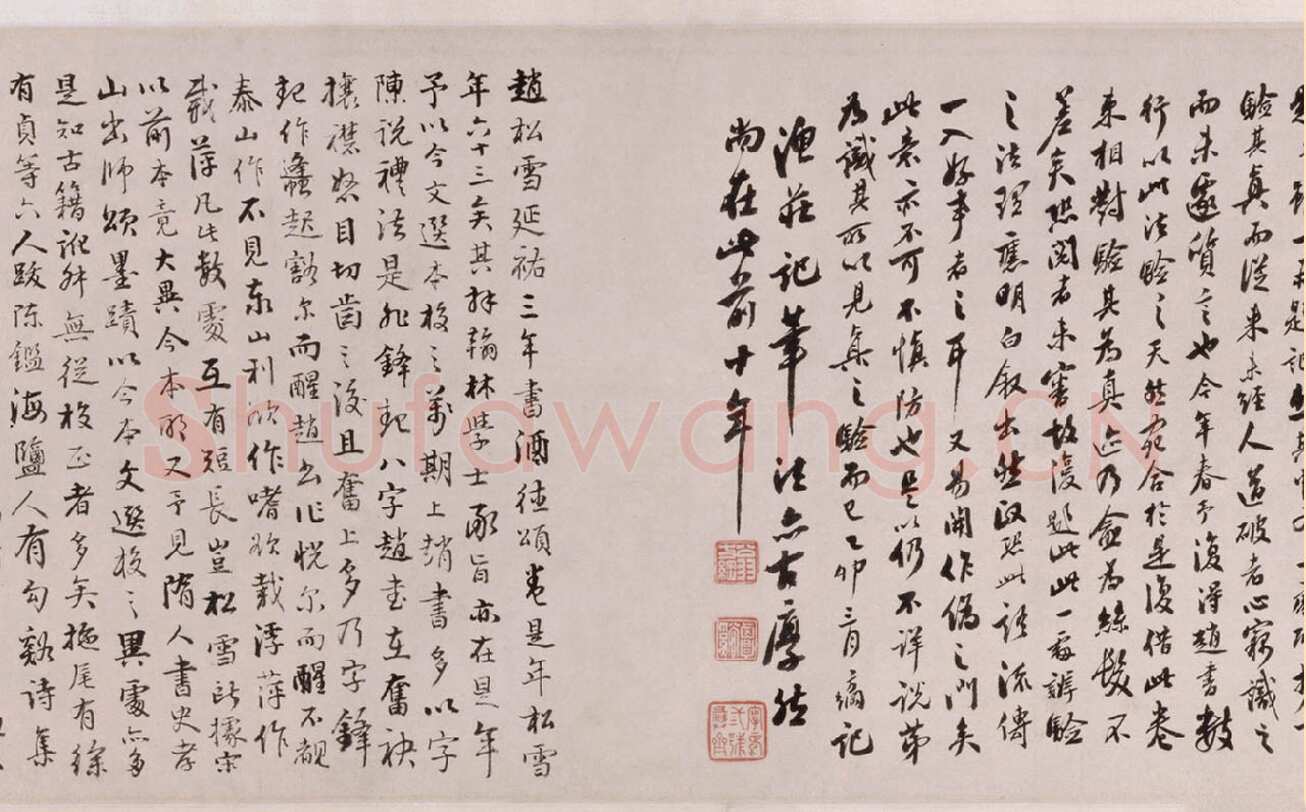 驗其真而從來未經人道破者心竊識之
而未遽質言也今年春予復得趙書數
行以此法驗之天然宛合於是復借此卷
來相對驗其為真迹乃僉為絲髮不
差矣然閱者未審故復題此此一處辨驗
之法理應明白敘出然政恐此語流傳
一入好事者之耳又易開作偽之門矣
此意亦不可不慎防也是以仍不詳說第
為識其所以見真之驗而已乙卯三月 記
漁莊記筆法亦古厚然
尚在此前十年
趙松雪延祐三年書酒德頌卷是年松雪
年六十三矣其拜翰林學士承旨亦在是年
予以今文選本校之萬期上趙書多以字
陳說禮法是非鋒起八字趙書在奮袂
攘襟怒目切齒之後且奮上多乃字鋒
起作蠭起豁尔而醒趙書作恍尔而醒不覩
泰山作不見泰山利欲作嗜欲載浮萍作
載萍凡此數處互有短長豈松雪所據宋
以前本竟大異今本耶又予見隋人書史孝
山出師頌墨蹟以今本文選校之異處亦多
是知古籍訛舛無從校正者多矣拖尾有徐
有貞等六人跋陳鑑海鹽人有勾谿詩集
Shufawang.CN